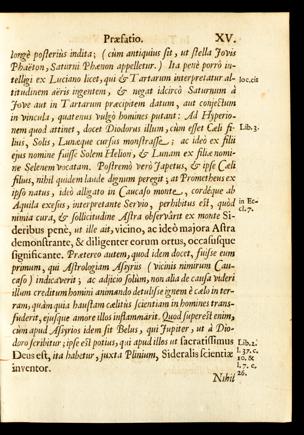 Præfatio. XV.
longè posterius indita; (cùm antiquius sit, ut stella Jovis
Phaëton, Saturni Phænon appelletur.) Ita penè porrò in-
telligi ex Luciano licet, qui & Tartarum interpretatur al- loc. cit
titudinem aëris ingentem, & negat idcircò Saturnum à
Jove aut in Tartarum præcipitem datum, aut conjectum
in vincula, quatenus vulgò homines putant: Ad Hyperio-
nem quod attinet, docet Diodorus illum, cùm esset Cœli fi- Lib. 3.
lius, Solis, Lunæque cursus monstrasse; ac ideò ex filii
ejus nomine fuisse Solem Helion, & Lunam ex filiæ nomi-
ne Selenem vocatam. Postremò verò Japetus, & ipse Cœli
filius, nihil quidem laude dignum peregit; at Prometheus ex
ipso natus, ideò alligato in Caucaso monte, cordéque ab
Aquila exesus, interpretante Servio, perhibitus est, quòd in Ec-
nimia cura, & sollicitudine Astra observârit ex monte Si- cl. 7.
deribus penè, ut ille ait, vicino, ac ideò majora Astra
demonstrante, & diligenter eorum ortus, occasusque
significante. Præterea autem, quod idem docet, fuisse eum
primum, qui Astrologiam Assyriis (vicinis nimirum Cau-
caso) indicaverit; ac adjicio solùm, non alia de causa videri
illum creditum homini animando detulisse ignem è cœlo in ter-
ram, quàm quia haustam cœlitùs scientiam in homines trans-
fuderit, ejusque amore illos inflammârit. Quod superest enim,
cùm apud Assyrios idem sit Belus, qui Jupiter, ut à Dio-
doro scribitur; ipse est potius, qui apud illos ut sacratissimus Lib. 2.
Deus est, ita habetur, juxta Plinium, Sideralis scientiæ l. 37. c. 10. &
inventor. l. 7. c. 26.
Nihil